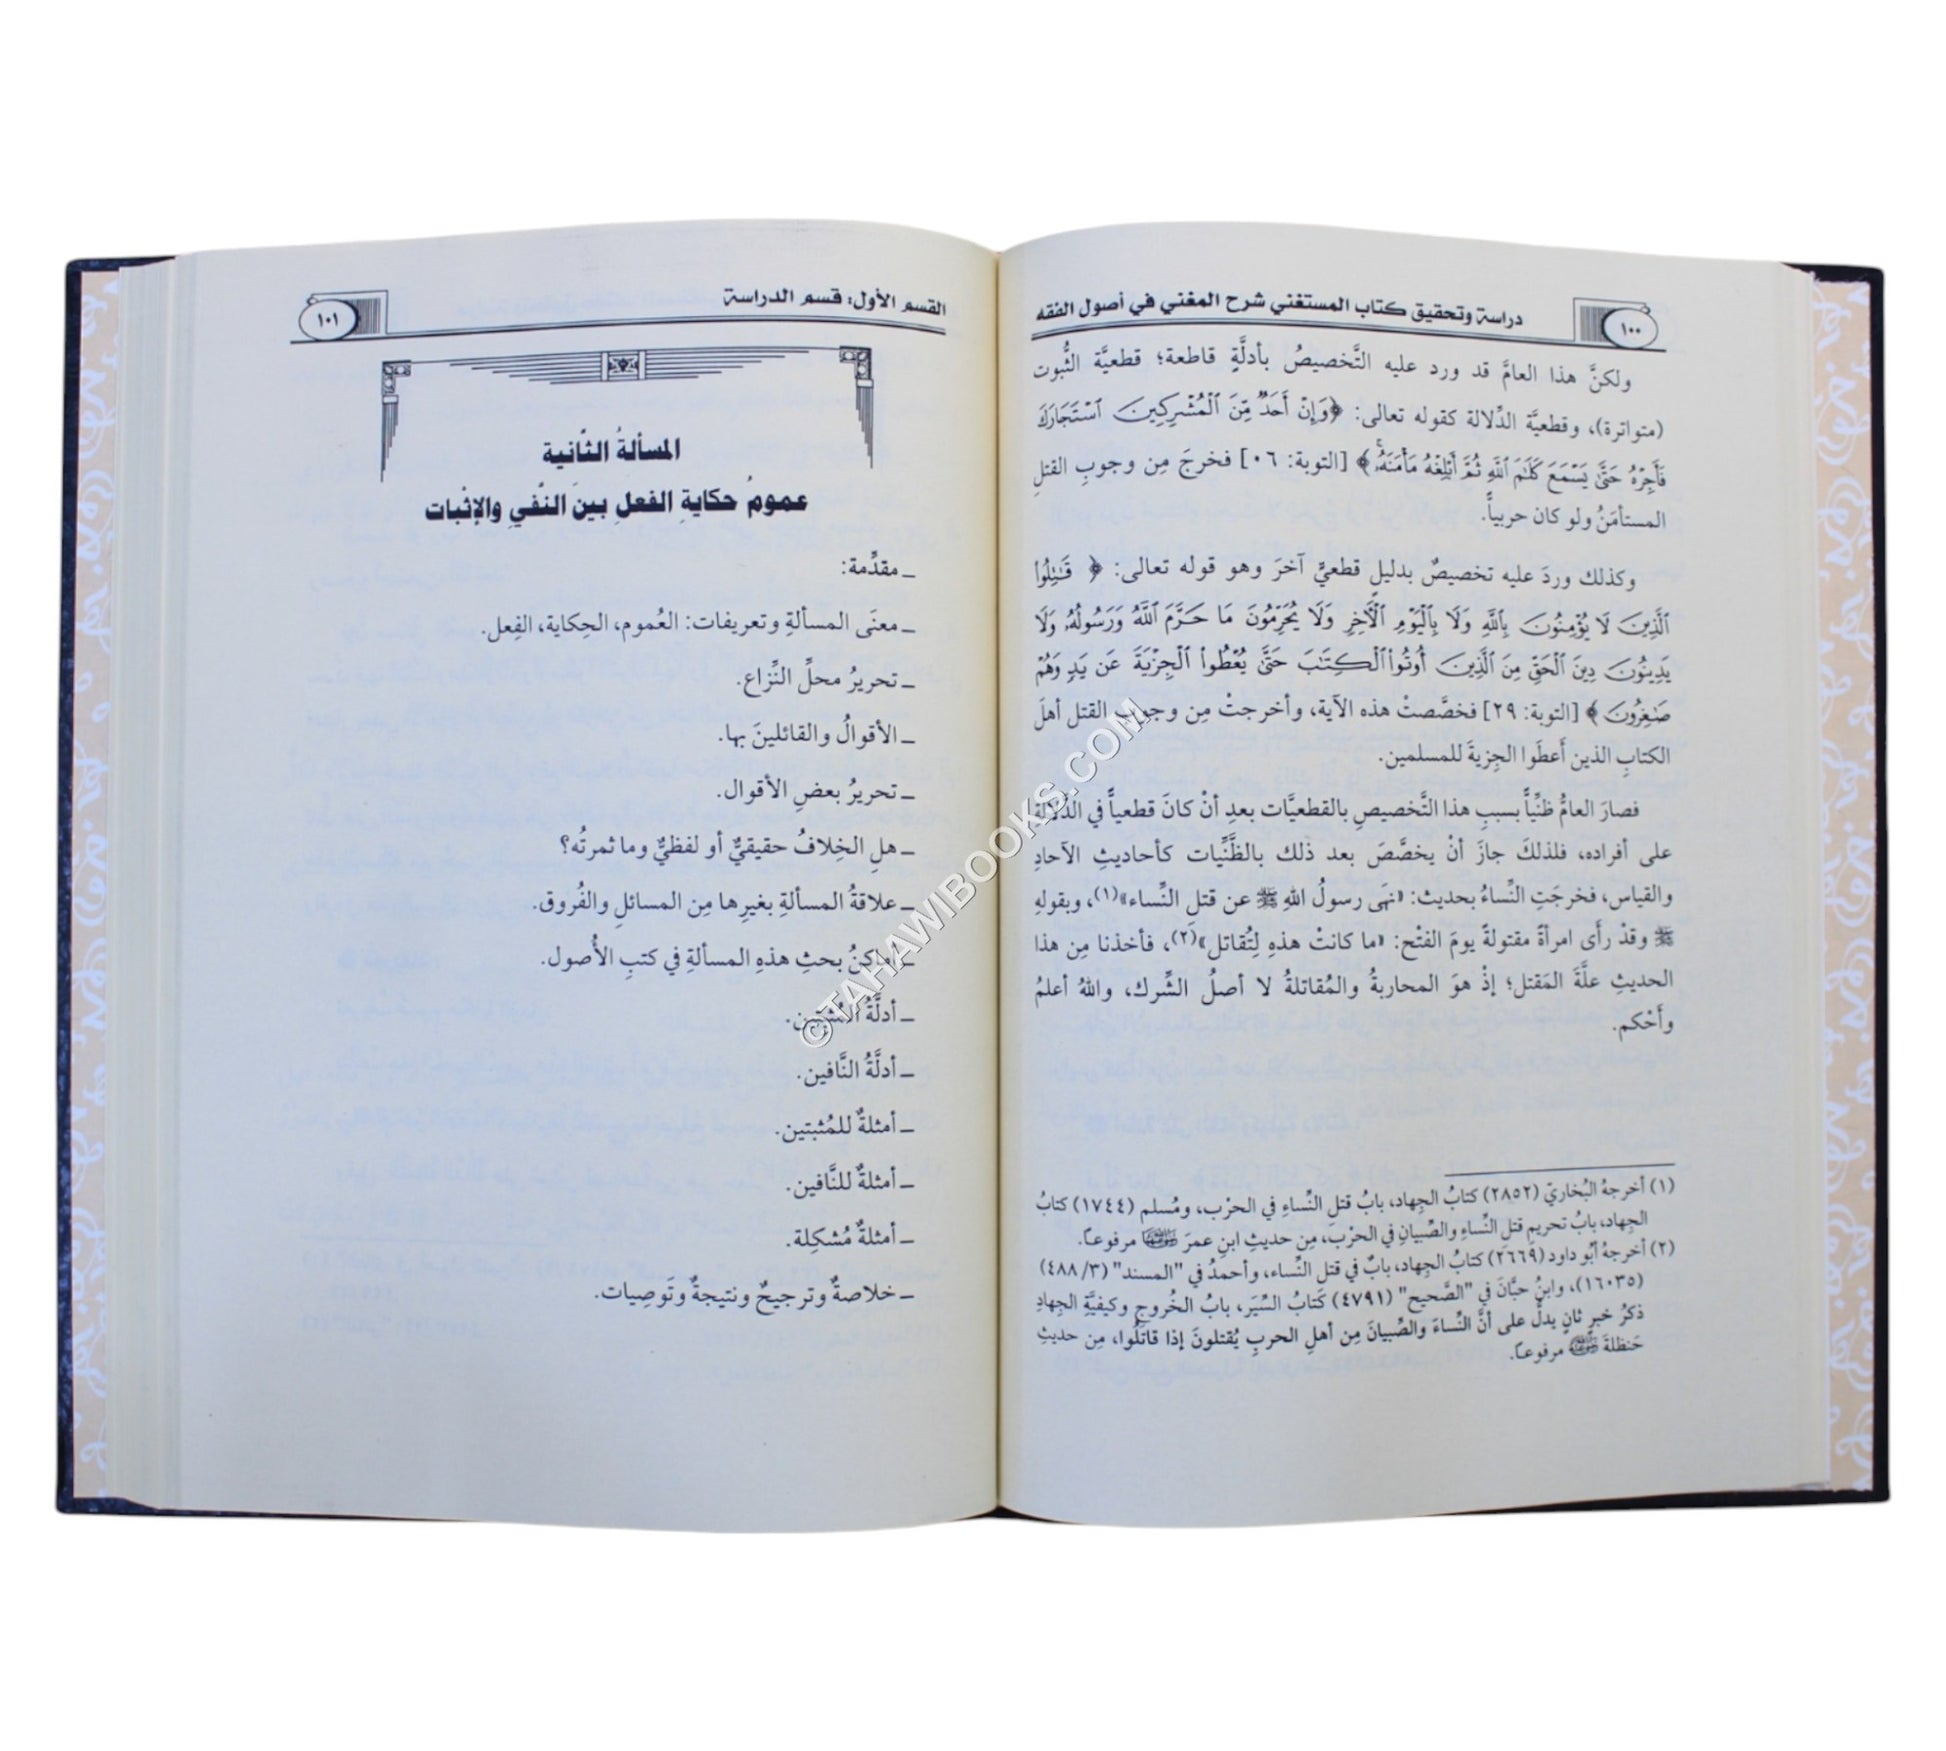 دراسة وتحقيق كتاب المستغني شرح المغني في أصول الفقه
١٠٠
ولكنَّ هذا العامَّ قد ورد عليه التَّخصيصُ بأدلَّةٍ قاطعة؛ قطعيَّة الثُّبوت
(متواترة)، وقطعيَّة الدِّلالة كقوله تعالى: ﴿وَإِنْ أَحَدٌ مِّنَ ٱلْمُشْرِكِينَ ٱسْتَجَارَكَ
فَأَجِرْهُ حَتَّىٰ يَسْمَعَ كَلَٰمَ ٱللَّهِ ثُمَّ أَبْلِغْهُ مَأْمَنَهُۥ﴾ [التوبة: ٠٦] فخرجَ مِن وجوبِ القتلِ
المستأمَنُ ولو كان حربياً.
وكذلك وردَ عليه تخصيصٌ بدليلٍ قطعيٍّ آخرَ وهو قوله تعالى: ﴿ قَٰتِلُوا۟
ٱلَّذِينَ لَا يُؤْمِنُونَ بِٱللَّهِ وَلَا بِٱلْيَوْمِ ٱلْءَاخِرِ وَلَا يُحَرِّمُونَ مَا حَرَّمَ ٱللَّهُ وَرَسُولُهُۥ وَلَا
يَدِينُونَ دِينَ ٱلْحَقِّ مِنَ ٱلَّذِينَ أُوتُوا۟ ٱلْكِتَٰبَ حَتَّىٰ يُعْطُوا۟ ٱلْجِزْيَةَ عَن يَدٍ وَهُمْ
صَٰغِرُونَ ﴾ [التوبة: ٢٩] فخصَّصتْ هذه الآية، وأخرجتْ مِن وجوبِ القتل أهلَ
الكتابِ الذين أعطَوا الجِزيةَ للمسلمين.
فصارَ العامُّ ظنِّياً بسببِ هذا التَّخصيصِ بالقطعيَّات بعدِ أنْ كانَ قطعياً في الدِّلالة
على أفراده، فلذلكَ جازَ أنْ يخصَّصَ بعد ذلك بالظَّنِّيات كأحاديثِ الآحادِ
والقياس، فخرجَتِ النِّساءُ بحديث: «نهَى رسولُ اللهِ ﷺ عن قتلِ النِّساء»(١)، وبقولهِ
ﷺ وقدْ رأى امرأةً مقتولةً يومَ الفتْح: «ما كانتْ هذهِ لِتُقاتل»(٢)، فأخذنا مِن هذا
الحديثِ علَّةَ المَقتل؛ إذْ هوَ المحاربةُ والمُقاتلةُ لا أصلُ الشِّرك، واللهُ أعلمُ
وأَحْكم.
(١) أخرجهُ البُخاريّ (٢٨٥٢) كتابُ الجِهاد، بابُ قتلِ النِّساءِ في الحرْب، ومُسلم (١٧٤٤) كتابُ
الجِهاد، بابُ تحريمِ قتلِ النِّساءِ والصِّبيانِ في الحرْب، مِن حديثِ ابنِ عمرَ مرفوعاً.
(٢) أخرجهُ أبُو داود (٢٦٦٩) كتابُ الجِهاد، بابٌ في قتلِ النِّساء، وأحمدُ في "المسند" (٣/ ٤٨٨)
(١٦٠٣٥)، وابنُ حبَّانَ في "الصَّحيح" (٤٧٩١) كتابُ السِّيَر، بابُ الخُروجِ وكيفيَّةِ الجِهادِ
ذكرُ خبرٍ ثانٍ يدلُّ على أنَّ النِّساءَ والصِّبيانَ مِن أهلِ الحربِ يُقتلونَ إذا قاتَلُوا، مِن حديثِ
حَنظلةَ مرفوعاً.
القسم الأول: قسم الدراسة
١٠١
المسألةُ الثّانية
عمومُ حكايةِ الفعلِ بينَ النّفيِ والإثبات
ـ مقدِّمة:
ـ معنَى المسألةِ وتعريفات: العُموم، الحِكاية، الفِعل.
ـ تحريرُ محلِّ النِّزاع.
ـ الأقوالُ والقائلينَ بها.
ـ تحريرُ بعضِ الأقوال.
ـ هلِ الخِلافُ حقيقيٌّ أو لفظيٌّ وما ثمرتُه؟
ـ علاقةُ المسألةِ بغيرِها مِن المسائلِ والفُروق.
ـ أماكنُ بحثِ هذهِ المسألةِ في كتبِ الأُصول.
ـ أدلَّةُ المُثبِتين.
ـ أدلَّةُ النَّافين.
ـ أمثلةٌ للمُثبتين.
ـ أمثلةٌ للنَّافين.
ـ أمثلةٌ مُشكِلة.
ـ خلاصةٌ وترجيحٌ ونتيجةٌ وتَوصِيات.
©TAHAWIBOOKS.COM